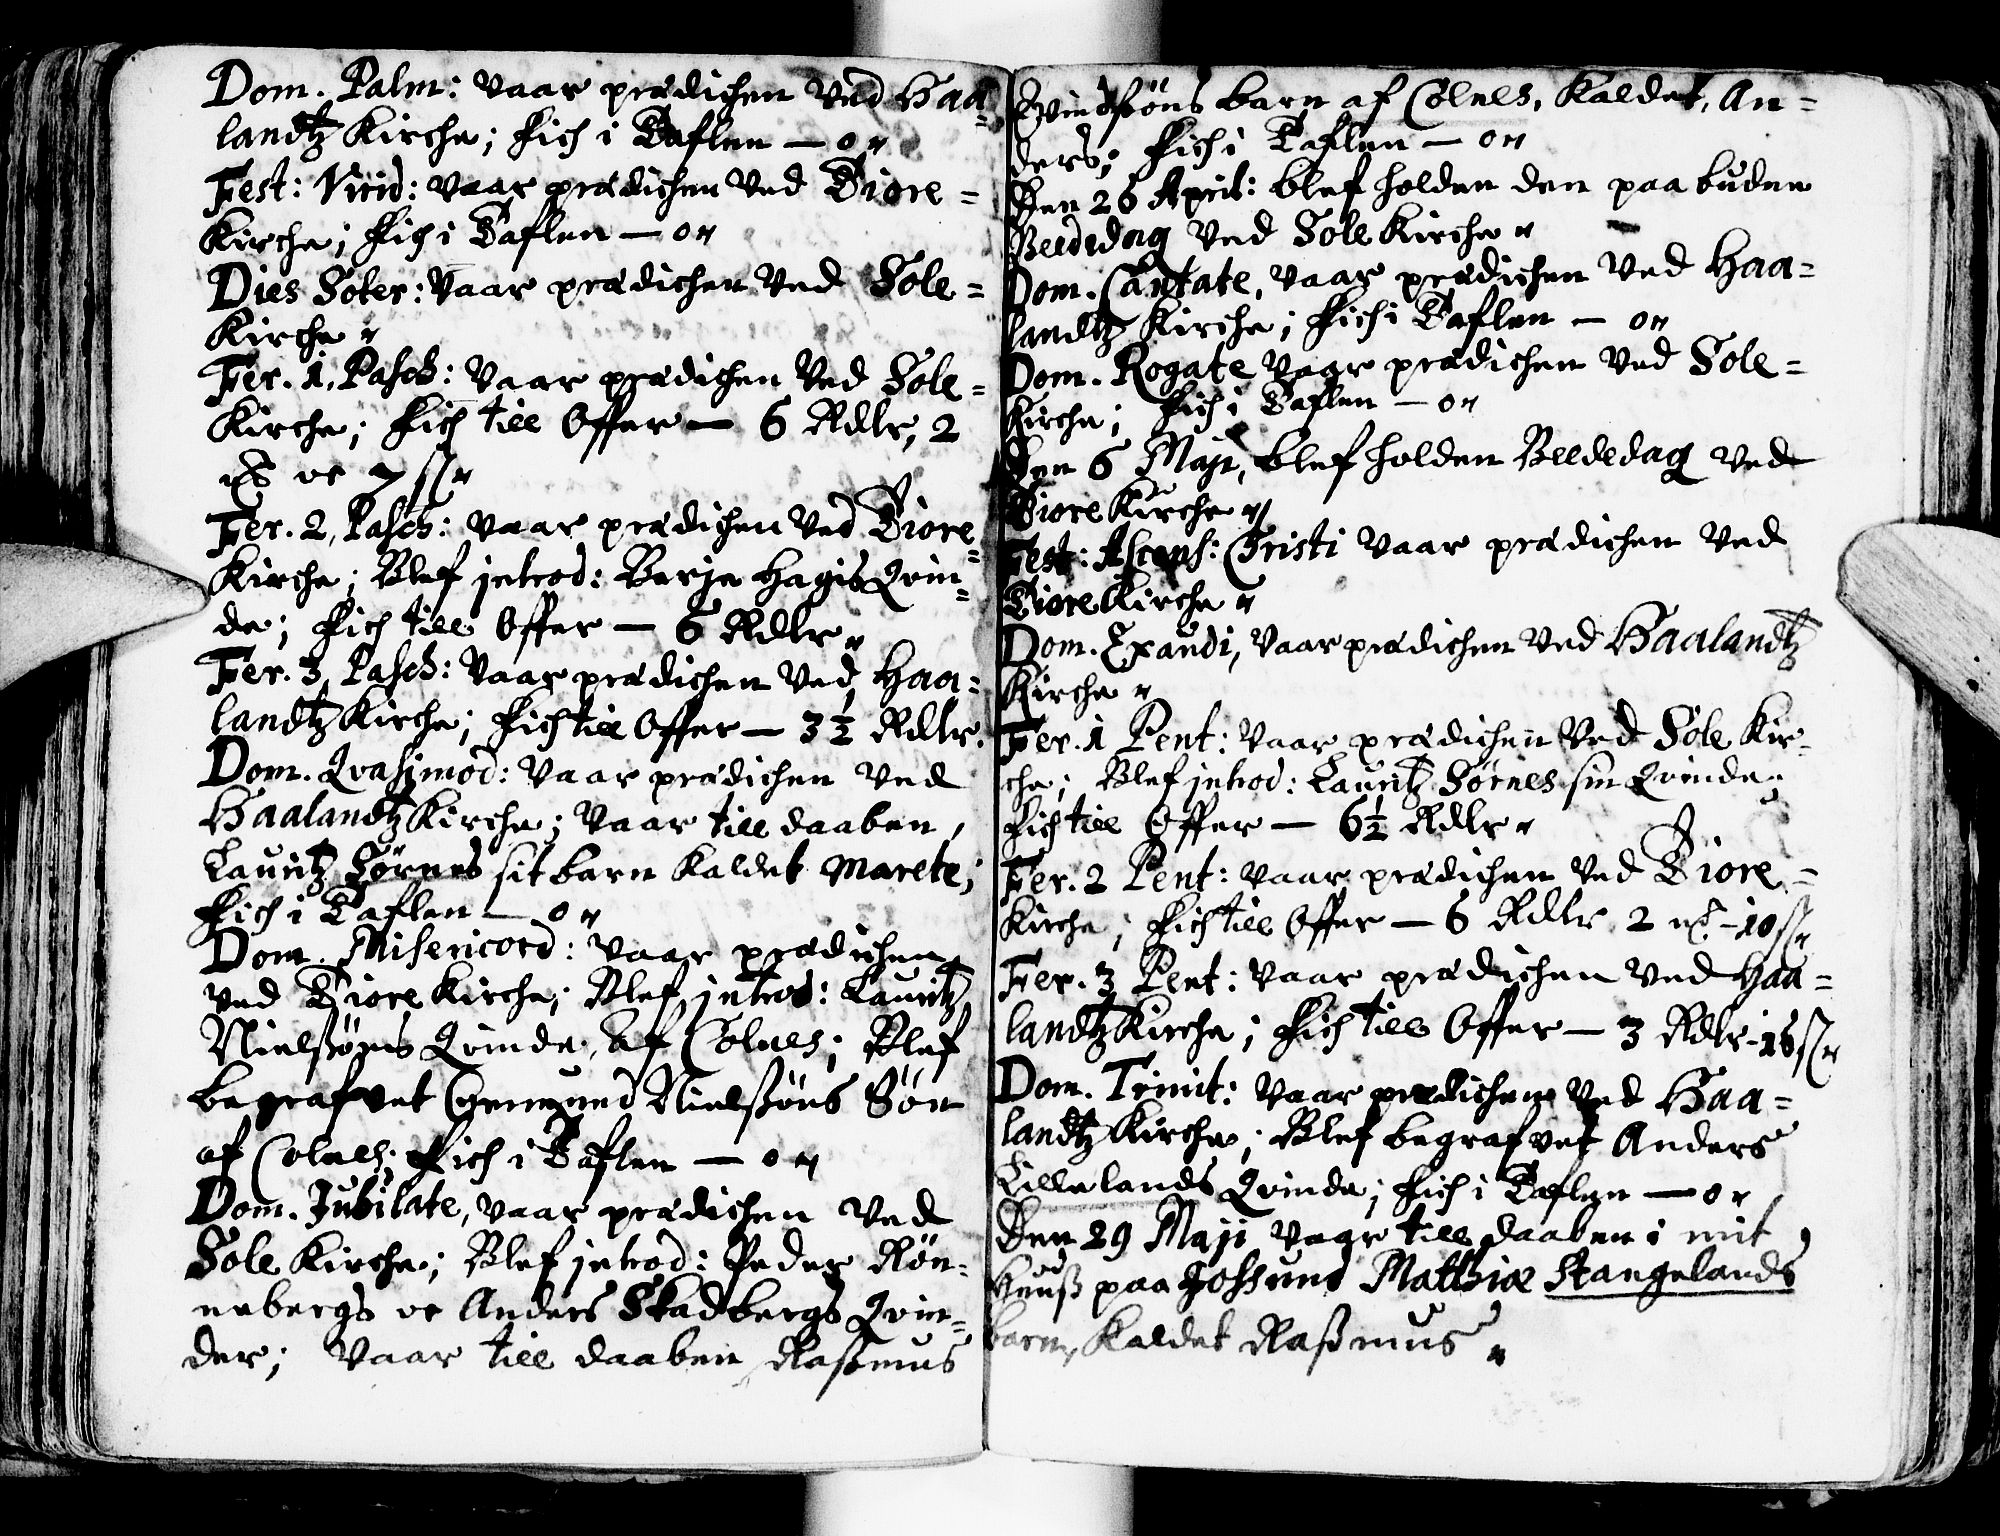 Dom. Palm: vaar prædichen ved Haa-
landtz Kirche; fich i Taflen — 0 "
Fest: Virid: vaar prædichen ved Tiore-
Kirche; fich i Taflen — 0 "
Dies Soter: vaar prædichen ved Sole-
Kirche "
Fer. 1, Pasch: vaar prædichen ved Sole-
Kirche; fich till Offer — 6 Rdlr, 2
oc 7 ss "
Fer. 2, Pasch: vaar prædichen ved Tiore-
Kirche; Blef introd: Berje Hagis Qvin-
de; fich till Offer — 6 Rdlr "
Fer. 3, Pasch: vaar prædichen ved Haa-
landtz Kirche; fich till Offer — 3 ½ Rdlr.
Dom. Qvasimod: vaar prædichen ved
Haalandtz Kirche; vaar till daaben,
Lauritz Sørnes sit barn kaldet Marete;
fich i Taflen — 0 "
Dom. Misericord: vaar prædichen
ved Tiore Kirche; Blef introd: Lauritz
Nielsøns Qvinde, af Colnes; Blef
begrafvet Nielsøns Søn
af Colnes; fich i Taflen — 0 "
Dom. Jubilate, vaar prædichen ved
Sole Kirche; Blef introd: Peder Røn-
nebergs oc Anders Skadbergs Qvin-
der; vaar till daaben Rasmus
Qvindsøns barn af Colnes, kaldet, An-
ders; fich i Taflen — 0 "
Den 26 April: blef holden den paabuden
Beededag ved Sole Kirche "
Dom. Cantate, vaar prædichen ved Haa-
landtz Kirche; fich i Taflen — 0 "
Dom. Rogate vaar prædichen ved Sole-
Kirche; fich i Taflen — 0 "
Den 6 Maji, blef holden Beededag ved
Tiore Kirche "
Fest: Ascens: Christi vaar prædichen ved
Tiore Kirche "
Dom. Exaudi, vaar prædichen ved Haalandtz
Kirche "
Fer. 1 Pent: vaar prædichen ved Sole Kir-
che; Blef introd: Lauritz Sørnes sin Qvinde;
fich till Offer — 6 ½ Rdlr "
Fer. 2 Pent: vaar prædichen ved Tiore-
Kirche; fich till Offer — 6 Rdlr 2 - 10 ss "
Fer. 3 Pent: vaar prædichen ved Haa-
landtz Kirche; fich till Offer — 3 Rdlr - 16 ss "
Dom. Trinit: vaar prædichen ved Haa-
landtz Kirche; Blef begrafvet Anders
Lillelands Qvinde; fich i Taflen — 0 "
Den 29 Maji vaar till daaben i mit
Huuß paa Jossund Matthiæ Stangelands
barn, kaldet Rasmus "